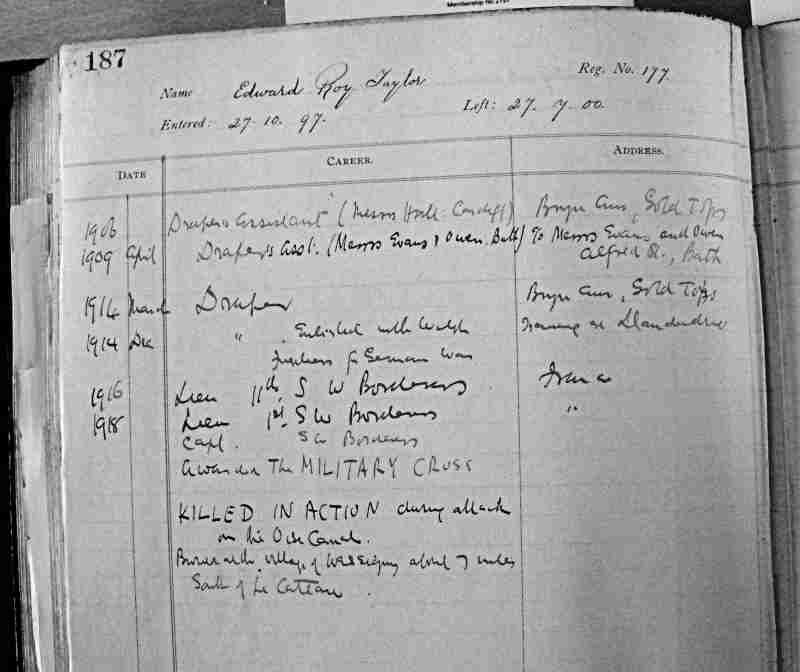 Membership No 2197
187
Name Edward Roy Taylor Reg. No. 177
Entered: 27. 10. 97. Left: 27. 7. 00.
DATE CAREER. ADDRESS.
1906 Drapers Assistant (Messrs Cardiff) Gold Tops
1909 April Draper's Asst. (Messrs Evans & Owen. Bath) c/o Messrs Evans and Owen
Alfred St., Bath
1914 March Draper Gold Tops
1914 Dec " Enlisted with Welsh Training at Llandudno
for German War
1916 Lieu 11th, S W Borderers France
1918 Lieu 1st, S W Borderers "
Capt. S W Borderers
Awarded The MILITARY CROSS
KILLED IN ACTION during attack
on the Oise Canal.
Buried at the village of about 7 miles
South of Le Cateau.